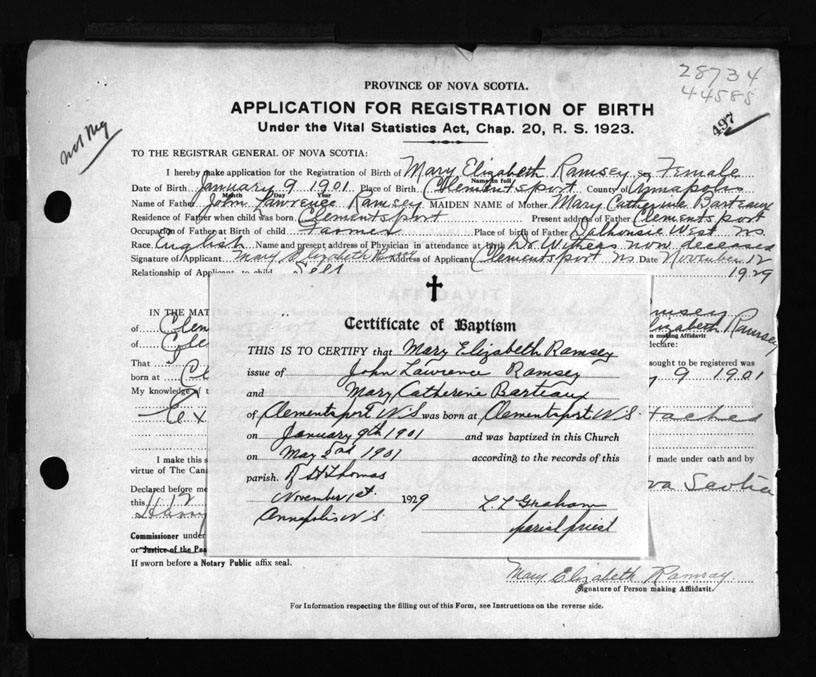 28734
44585
497
not Reg
PROVINCE OF NOVA SCOTIA.
APPLICATION FOR REGISTRATION OF BIRTH
Under the Vital Statistics Act, Chap. 20, R. S. 1923.
TO THE REGISTRAR GENERAL OF NOVA SCOTIA:
I hereby make application for the Registration of Birth of Mary Elizabeth Ramsey Sex Female
Name in full
Date of Birth January 9 1901 Place of Birth Clementsport County of Annapolis
Month Day Year
Name of Father John Lawrence Ramsey MAIDEN NAME of Mother Mary Catherine Barteaux
Residence of Father when child was born Clementsport Present address of Father Clementsport
Occupation of Father at Birth of child Farmer Place of birth of Father Dalhousie West NS
Race English Name and present address of Physician in attendance at birth Dr Withers now deceased
Signature of Applicant Mary Elizabeth Address of Applicant Clementsport NS Date November 12
Relationship of Applicant to child Self 1929
AFFIDAVIT
IN THE MAT
of Clem
of making Affidavit
declare:
That sought to be registered was
born at Cl 9 1901
My knowledge of t
Ex tached
I make this s f made under oath and by
virtue of The Cana va Scotia
Declared before me
this 12
Henry
Commissioner under
or Justice of the Pea
If sworn before a Notary Public affix seal.
Certificate of Baptism
THIS IS TO CERTIFY that Mary Elizabeth Ramsey
issue of John Lawrence Ramsey
and Mary Catherine Barteaux
of Clementsport N.S. was born at Clementsport N.S.
on January 9th 1901 and was baptized in this Church
on May 2nd 1901 according to the records of this
parish. of St Thomas
November 1st 1929 L L Graham
Annapolis N.S. parish priest
Mary Elizabeth Ramsay
Signature of Person making Affidavit.
For Information respecting the filling out of this Form, see Instructions on the reverse side.